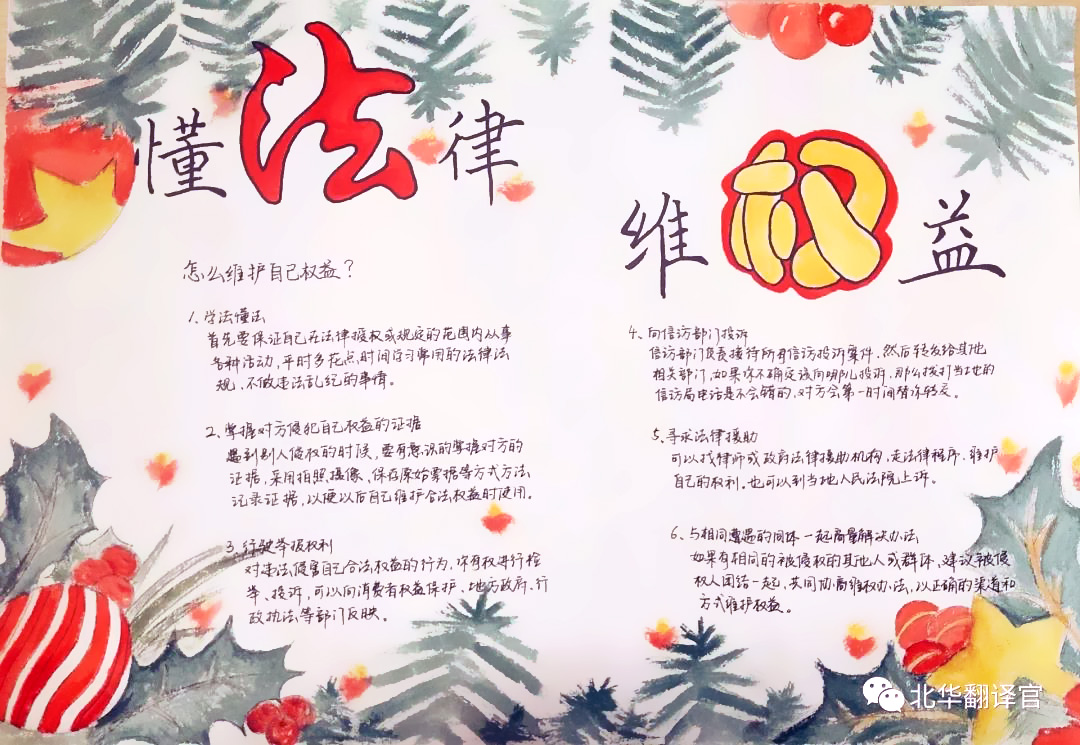 懂法律
维权益
怎么维护自己权益？
1、学法懂法
首先要保证自己在法律授权或规定的范围内从事
各种活动，平时多花点时间学习常用的法律法
规，不做违法乱纪的事情。
2、掌握对方侵犯自己权益的证据
遇到别人侵权的时候，要有意识的掌握对方的
证据，采用拍照摄像、保存原始票据等方式方法
记录证据，以便以后自己维护合法权益时使用。
3、行驶举报权利
对违法侵害自己合法权益的行为，你有权进行检
举、投诉，可以向消费者权益保护、地方政府、行
政执法等部门反映。
4、向信访部门投诉
信访部门负责接待所有信访投诉案件，然后转交给其他
相关部门，如果你不确定该向哪儿投诉，那么拨打当地的
信访局电话是不会错的，对方会第一时间替你转交。
5、寻求法律援助
可以找律师或政府法律援助机构，走法律程序，维护
自己的权利。也可以到当地人民法院上诉。
6、与相同遭遇的团体一起商量解决办法
如果有相同的被侵权的其他人或群体，建议被侵
权人团结一起，共同协商维权办法，以正确的渠道和
方式维护权益。
北华翻译官